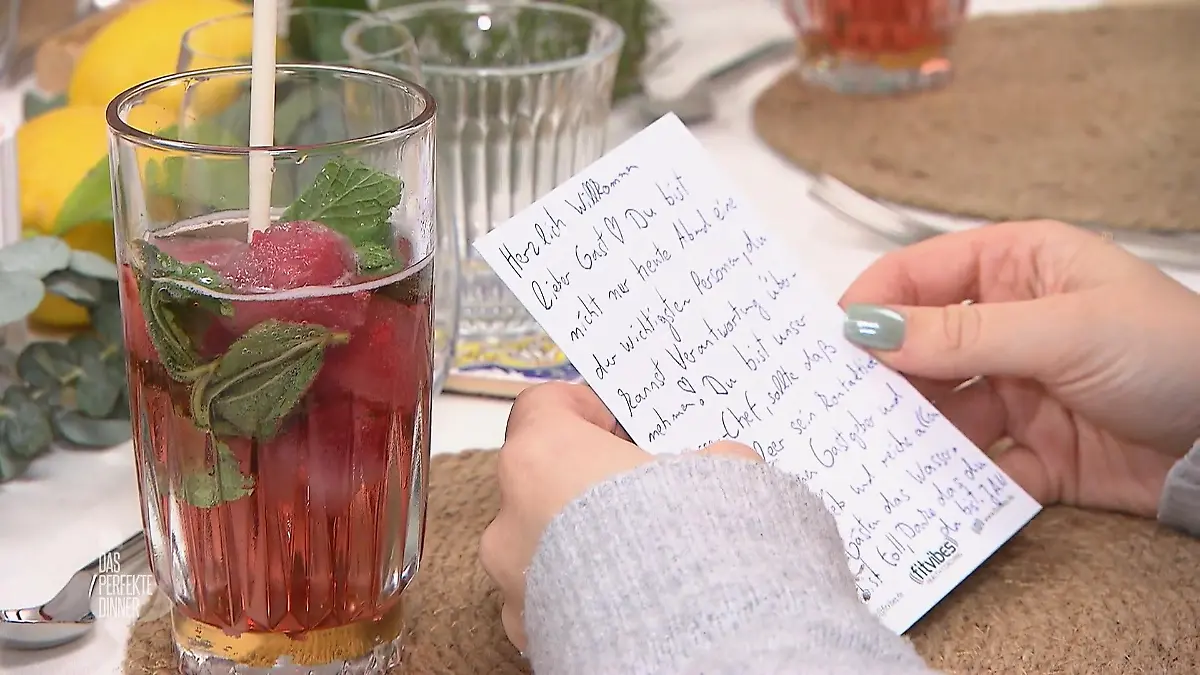 Herzlich Willkommen
lieber Gast ♡ Du bist
nicht nur heute Abend eine
der wichtigsten Personen, du
kannst Verantwortung über-
nehmen ♡ Du bist unser
Chef, sollte daß
leer sein kontaktiere
Gastgeber und
und reiche allen
Gästen das Wasser.
ist toll, Danke daß du
da bist.
fitvibes
DAS
PERFEKTE
DINNER